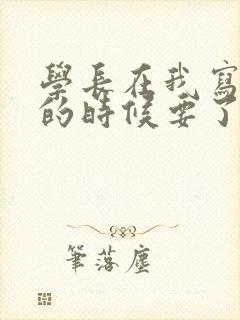 學長在我寫
的時候要了
筆落塵